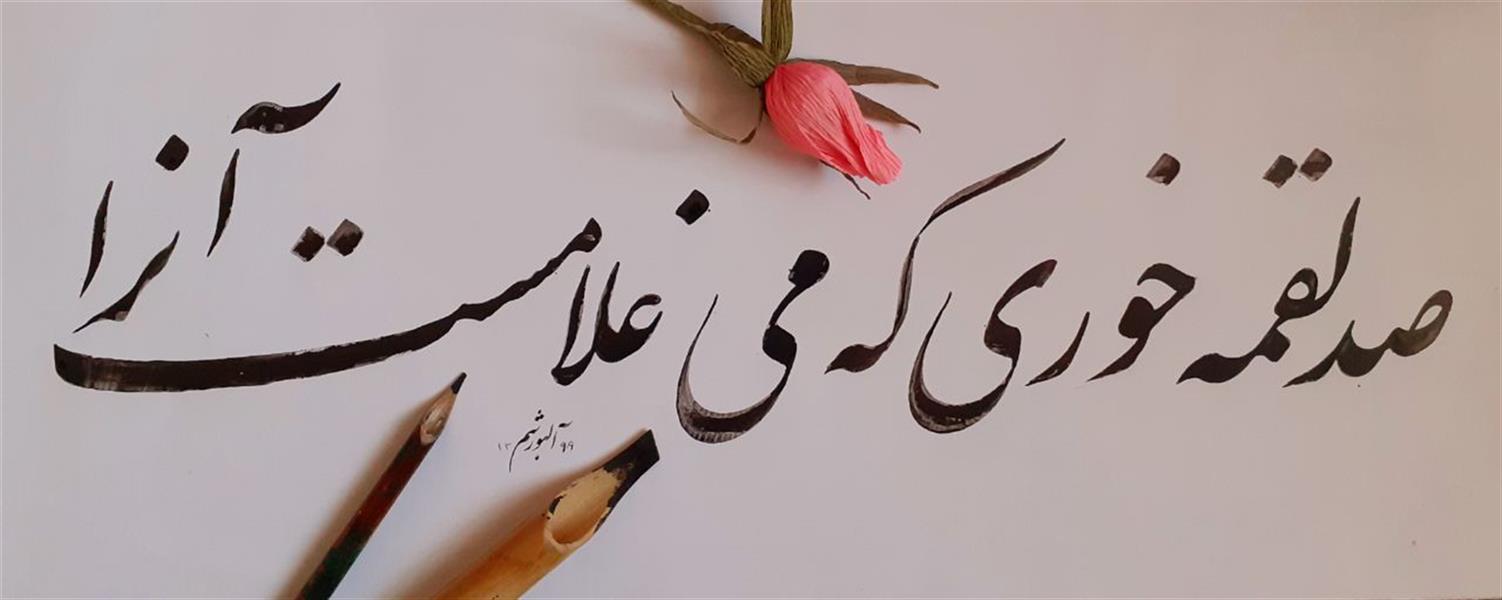 صد لقمه خوری که می غلامست آنرا
آلبورشم ۱۳۹۹